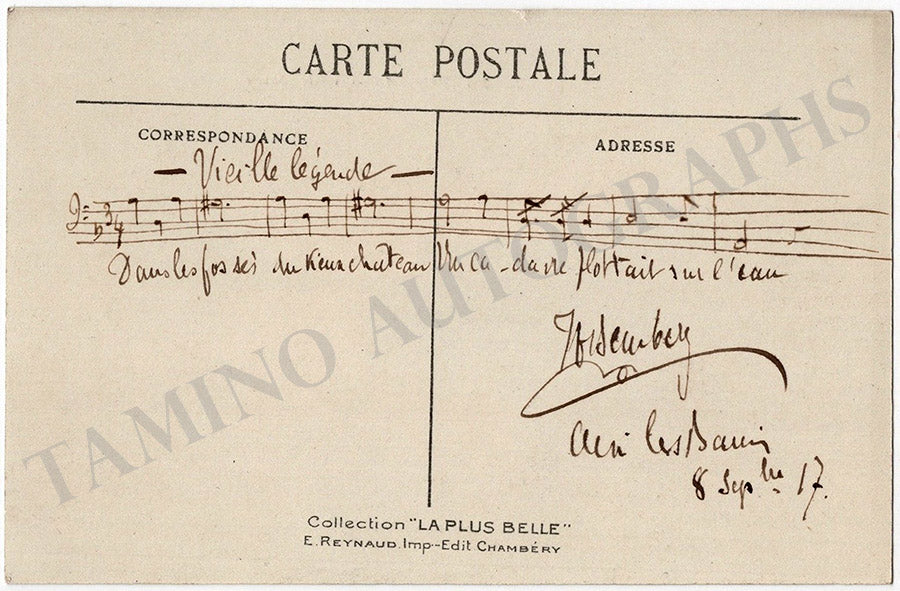 CARTE POSTALE
CORRESPONDANCE
ADRESSE
— Vieille légende —
3
4
Dans les fossés du vieux chateau Un ca-davre flottait sur l'eau
Aix les Bains
8 Sepbre 17.
Collection "LA PLUS BELLE"
E. REYNAUD. Imp.-Edit CHAMBÉRY
TAMINO AUTOGRAPHS